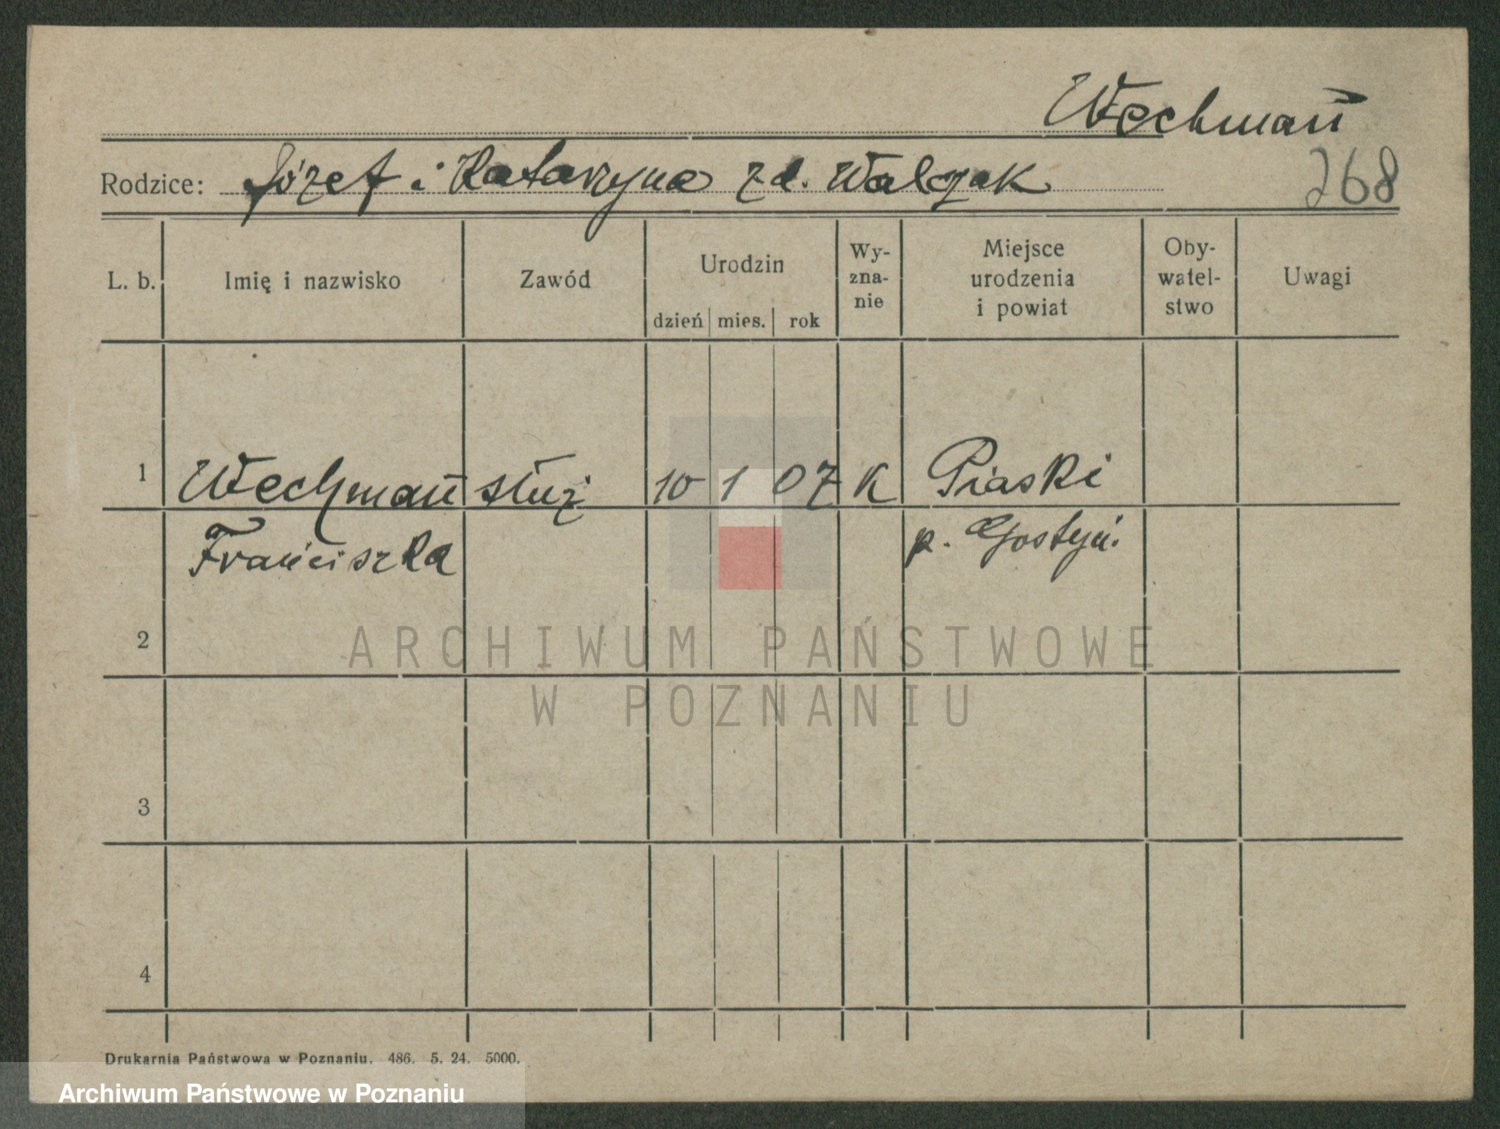 Wechmań
Rodzice: Józef i Katarzyna zd. Walczak
268
L. b. Imię i nazwisko Zawód Urodzin dzień mies. rok Wy-
zna-
nie Miejsce
urodzenia
i powiat Oby-
watel-
stwo Uwagi
1 Wechmań służ 10 1 07 K Piaski
Franciszka p. Gostyń.
2
3
4
Drukarnia Państwowa w Poznaniu. 486. 5. 24. 5000.
ARCHIWUM PAŃSTWOWE
W POZNANIU
Archiwum Państwowe w Poznaniu